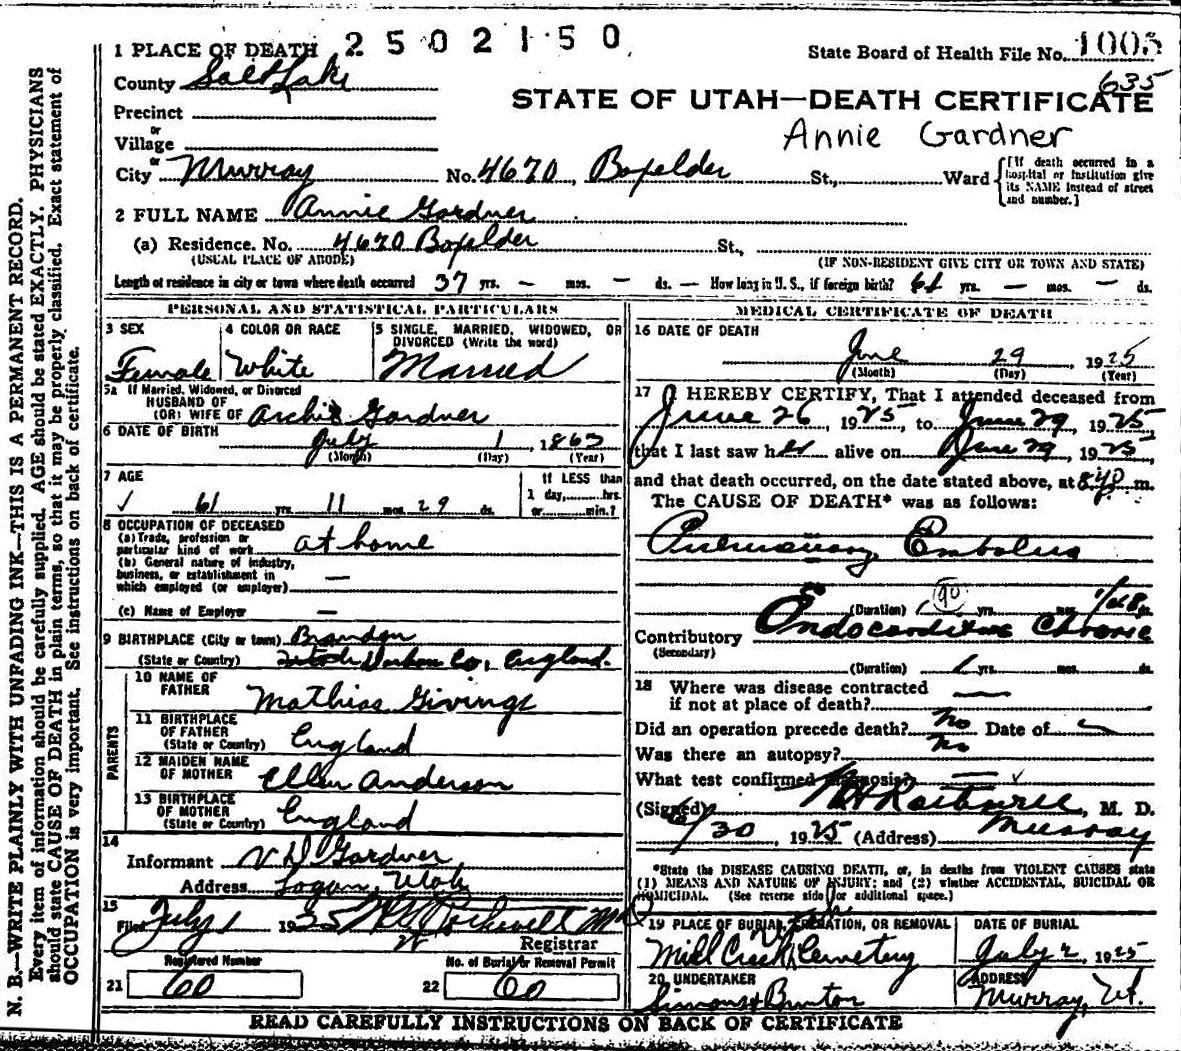 1 PLACE OF DEATH 2502150 State Board of Health File No. 1005
County Salt Lake 635
STATE OF UTAH—DEATH CERTIFICATE
Precinct
or
Annie Gardner
Village
or
City Murray No. 4670, Boxelder St., Ward {[If death occurred in a hospital or institution give its NAME instead of street and number.]
2 FULL NAME Annie Gardner
(a) Residence. No. 4670 Boxelder St.,
(USUAL PLACE OF ABODE) (IF NON-RESIDENT GIVE CITY OR TOWN AND STATE)
Length of residence in city or town where death occurred 37 yrs. — mos. — ds. — How long in U. S., if foreign birth? 61 yrs. — mos. — ds.
PERSONAL AND STATISTICAL PARTICULARS
3 SEX
Female
4 COLOR OR RACE
White
5 SINGLE, MARRIED, WIDOWED, OR
DIVORCED (Write the word)
Married
5a If Married, Widowed, or Divorced
HUSBAND OF
(OR) WIFE OF Archie Gardner
6 DATE OF BIRTH July 1, 1863
(Month) (Day) (Year)
7 AGE
61 yrs. 11 mos. 29 ds.
If LESS than
1 day, hrs.
or min.?
8 OCCUPATION OF DECEASED
(a) Trade, profession or
particular kind of work at home
(b) General nature of industry,
business, or establishment in —
which employed (or employer)
(c) Name of Employer —
9 BIRTHPLACE (City or town) Brandon
(State or Country) Durham Co, England.
PARENTS
10 NAME OF
FATHER Mathias Givings
11 BIRTHPLACE
OF FATHER
(State or Country) England
12 MAIDEN NAME
OF MOTHER Ellen Anderson
13 BIRTHPLACE
OF MOTHER
(State or Country) England
14
Informant V D Gardner
Address Logan, Utah
15
Filed July 1 1925 Rockwell
Registrar
Registered Number No. of Burial or Removal Permit
21 60 22 60
MEDICAL CERTIFICATE OF DEATH
16 DATE OF DEATH
June 29, 1925
(Month) (Day) (Year)
17 I HEREBY CERTIFY, That I attended deceased from
June 26, 1925, to June 29, 1925
that I last saw her alive on June 29, 1925,
and that death occurred, on the date stated above, at m.
The CAUSE OF DEATH* was as follows:
Pulmonary Embolus
90
(Duration) yrs. mos. ds.
Contributory Endocarditis Chronic
(Secondary)
(Duration) 1 yrs. mos. ds.
18 Where was disease contracted
if not at place of death? —
Did an operation precede death? No Date of
Was there an autopsy? No
What test confirmed diagnosis? —
(Signed) M. D.
6/30, 1925 (Address) Murray
*State the DISEASE CAUSING DEATH, or, in deaths from VIOLENT CAUSES state
(1) MEANS AND NATURE OF INJURY; and (2) whether ACCIDENTAL, SUICIDAL OR
HOMICIDAL. (See reverse side for additional space.)
19 PLACE OF BURIAL, CREMATION, OR REMOVAL
Mill Creek, Cemetery
DATE OF BURIAL
July 2, 1925
20 UNDERTAKER
ADDRESS
Murray, Ut.
READ CAREFULLY INSTRUCTIONS ON BACK OF CERTIFICATE
N. B.—WRITE PLAINLY WITH UNFADING INK—THIS IS A PERMANENT RECORD.
Every item of information should be carefully supplied. AGE should be stated EXACTLY. PHYSICIANS
should state CAUSE OF DEATH in plain terms, so that it may be properly classified. Exact statement of
OCCUPATION is very important. See instructions on back of certificate.